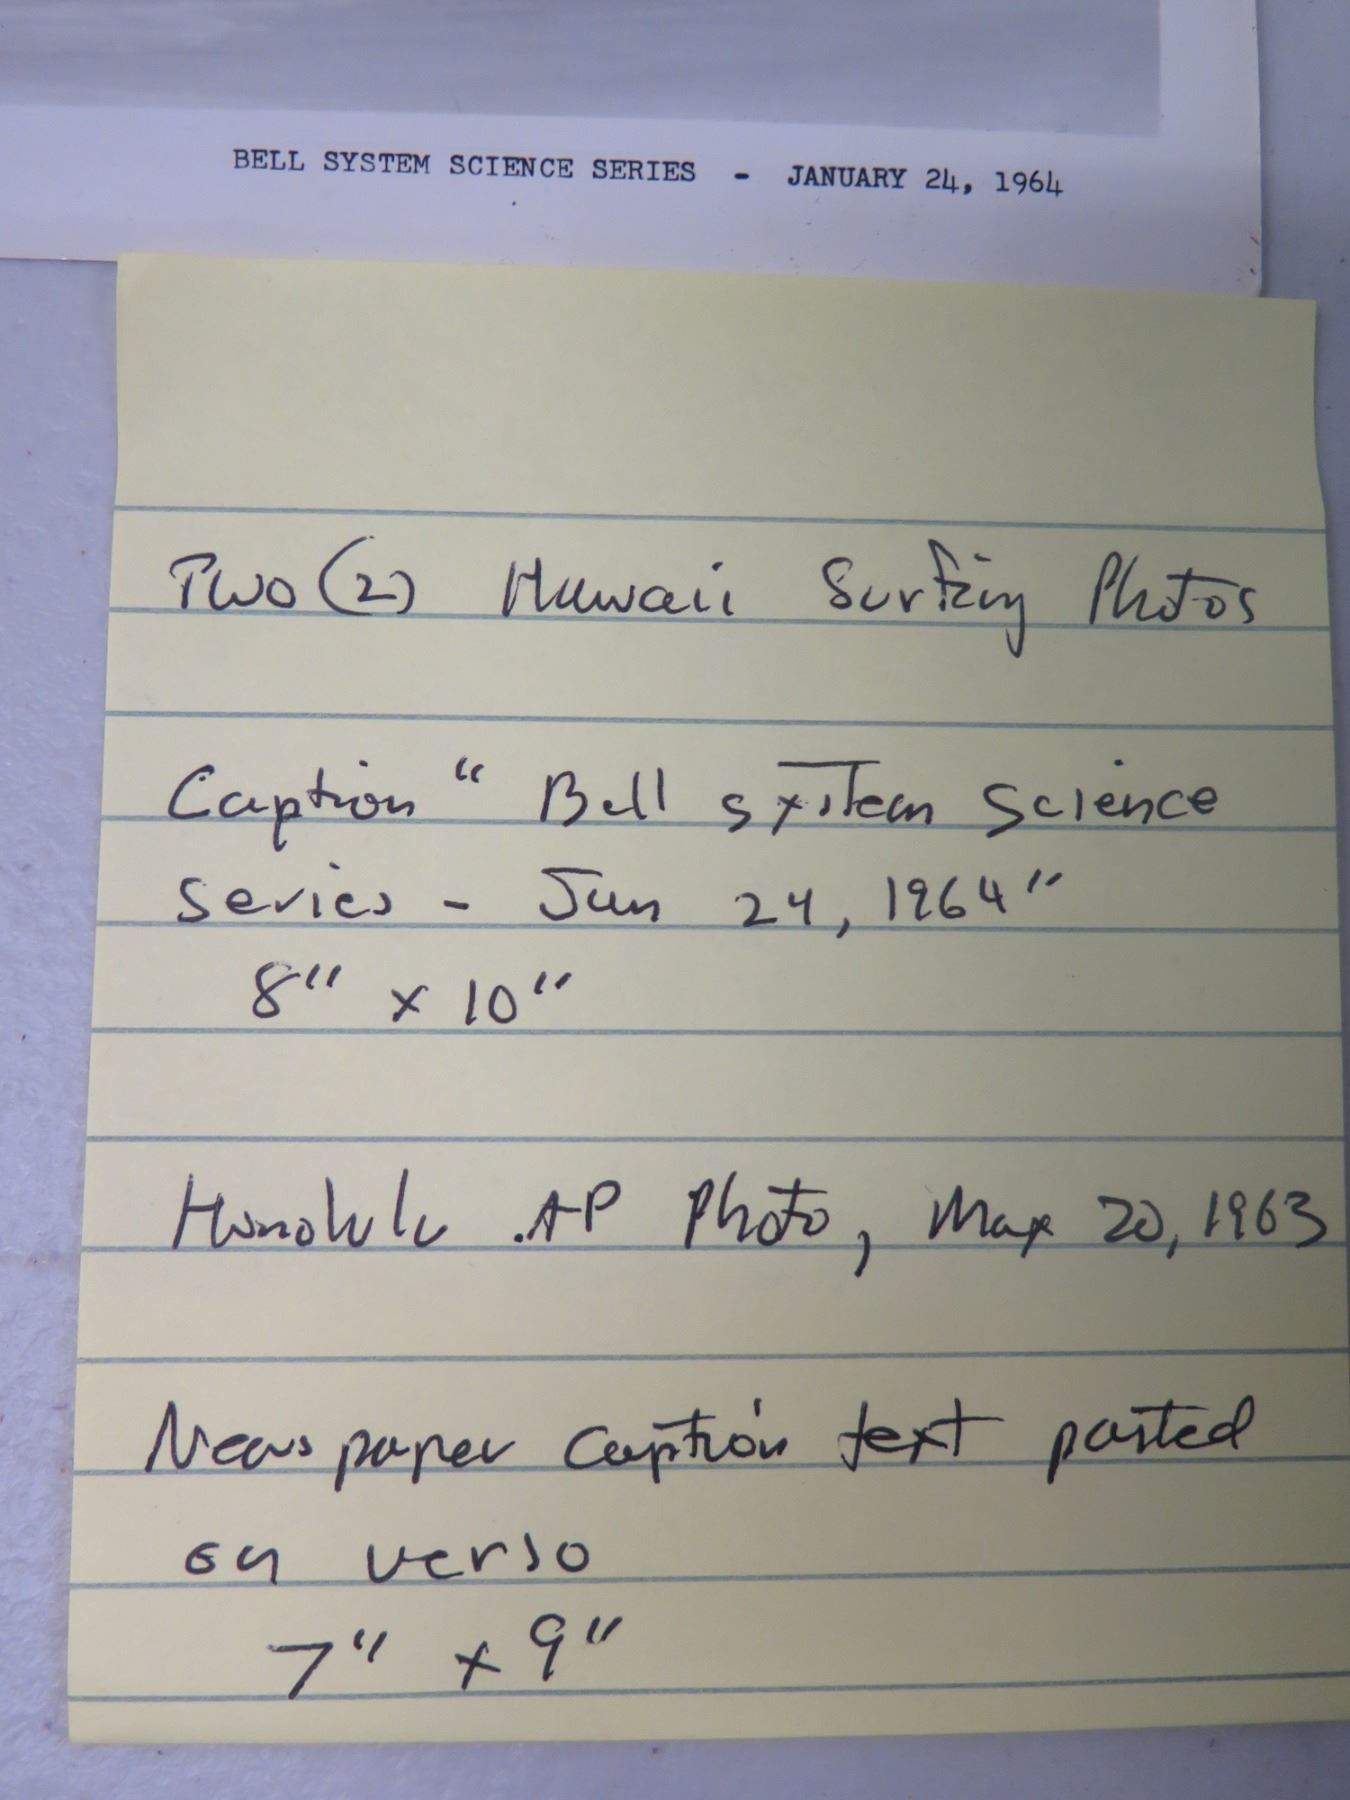 BELL SYSTEM SCIENCE SERIES - JANUARY 24, 1964
Two (2) Hawaii Surfing Photos
Caption " Bell system Science
series - Jan 24, 1964"
8" x 10"
Honolulu AP Photo, May 20, 1963
Newspaper caption text pasted
on verso
7" x 9"